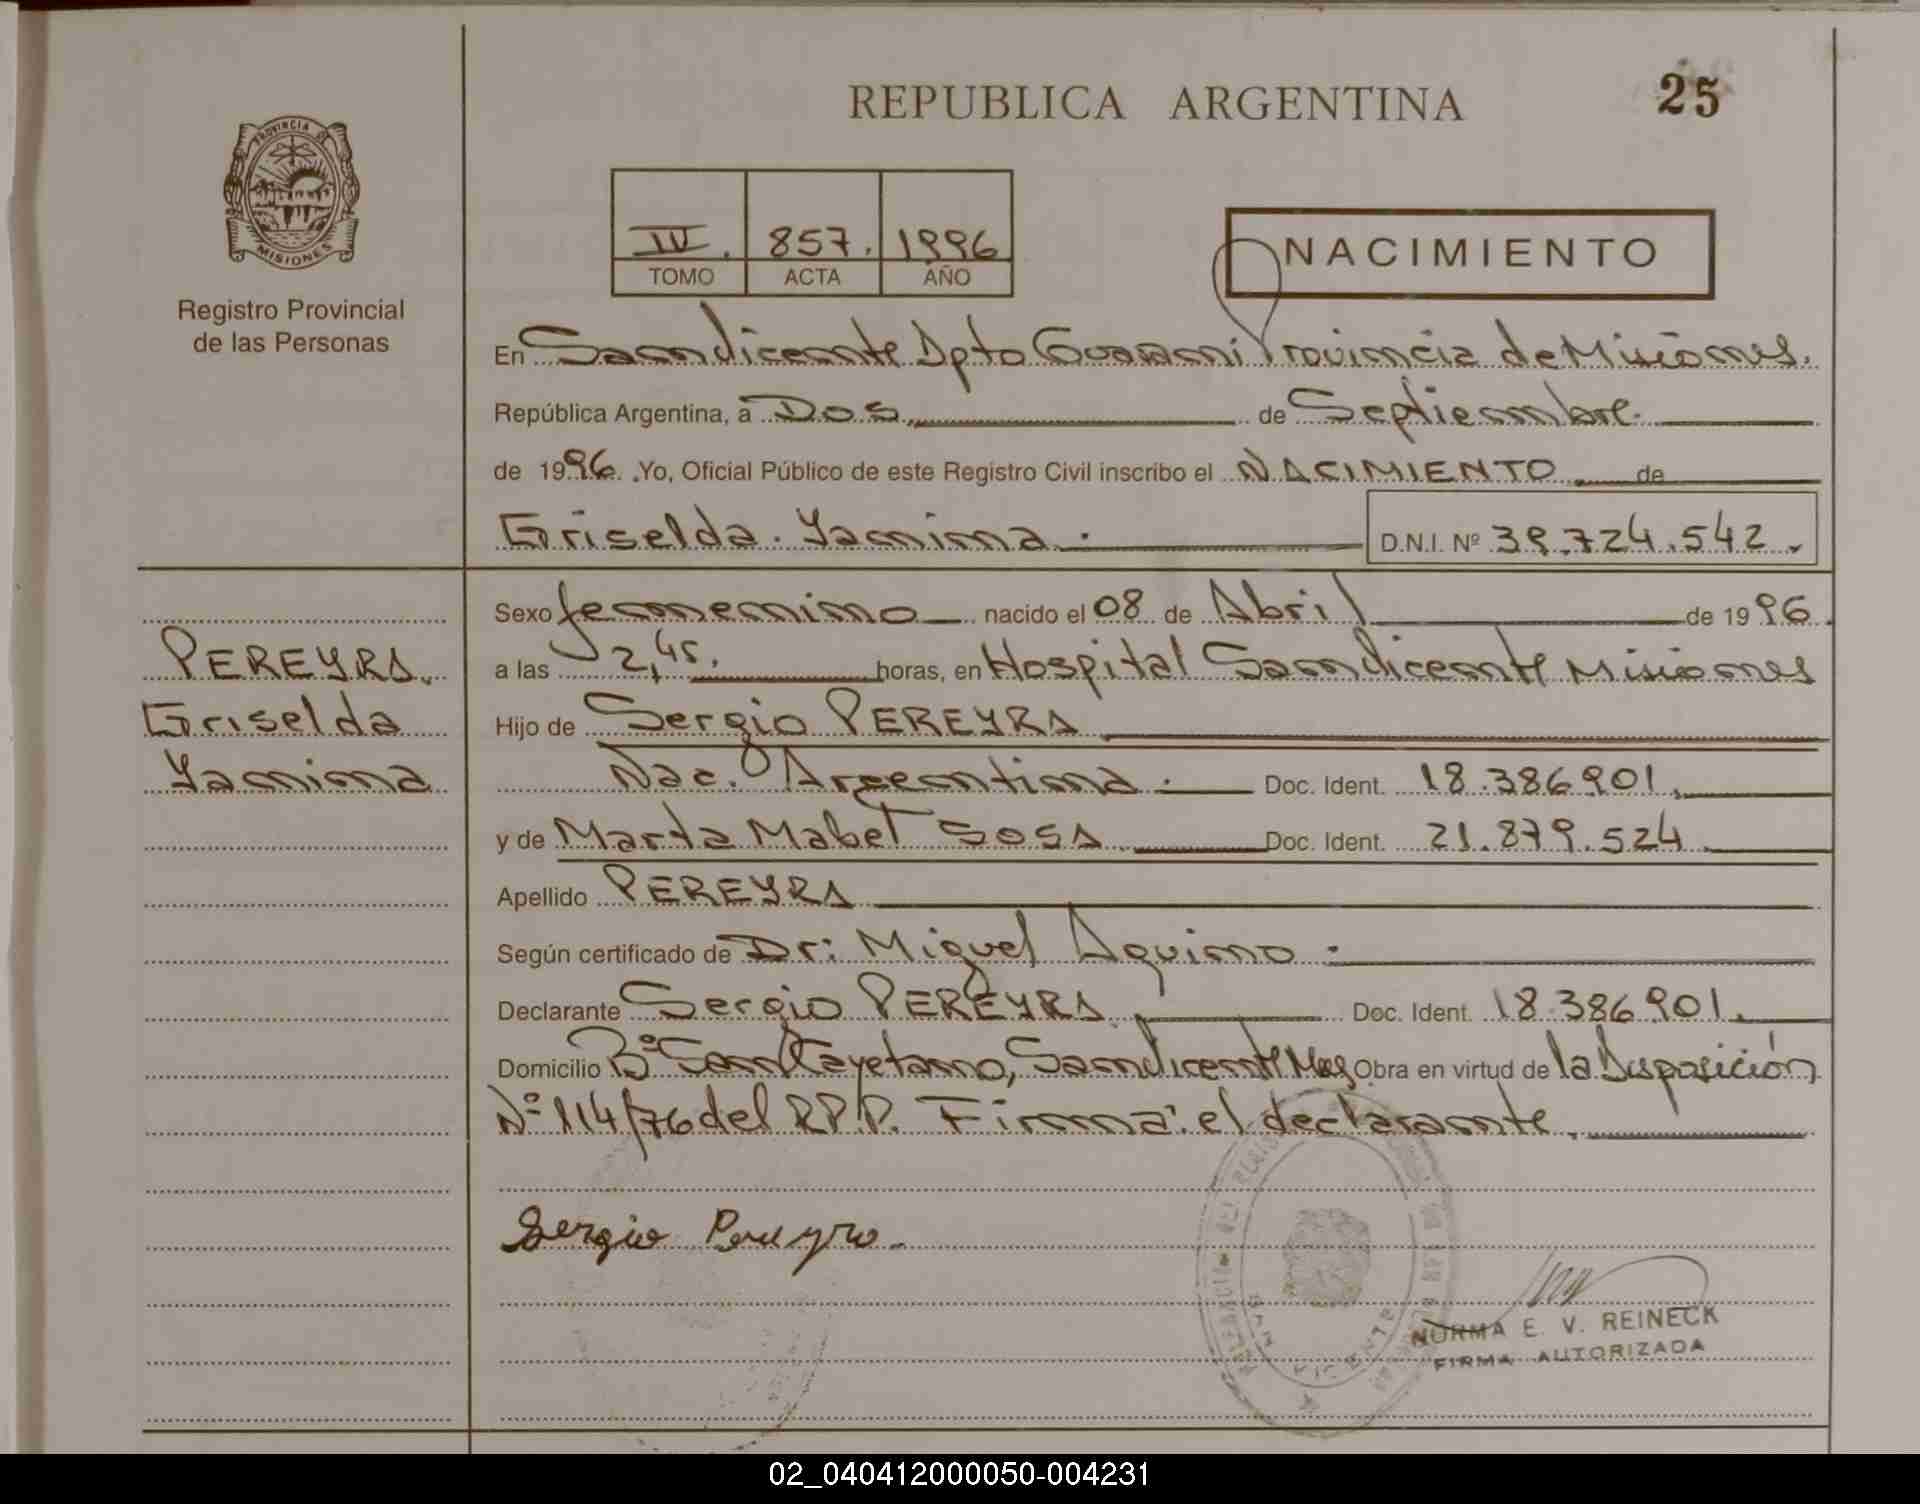 REPUBLICA ARGENTINA
25
PROVINCIA DE
MISIONES
Registro Provincial
de las Personas
IV. 857. 1996
TOMO ACTA AÑO
NACIMIENTO
En San Vicente Dpto Guarani Provincia de Misiones.
República Argentina, a Dos de Septiembre.
de 1996. Yo, Oficial Público de este Registro Civil inscribo el NACIMIENTO de
Griselda. Yanina. D.N.I. Nº 39.724.542.
PEREYRA.
Griselda
Yanina
Sexo femenino nacido el 08 de Abril de 1996.
a las 2,45. horas, en Hospital San Vicente Misiones
Hijo de Sergio PEREYRA
Nac. Argentina. Doc. Ident. 18.386.901.
y de Marta Mabel SOSA Doc. Ident. 21.879.524
Apellido PEREYRA
Según certificado de Dr: Miguel Aquino.
Declarante Sergio PEREYRA. Doc. Ident. 18.386.901.
Domicilio Bº San Cayetano, San Vicente Mnes Obra en virtud de la Disposición
Nº 114/76 del R.P.P. Firma: el declarante.
Sergio Pereyra.
NORMA E. V. REINECK
FIRMA AUTORIZADA
02_040412000050-004231